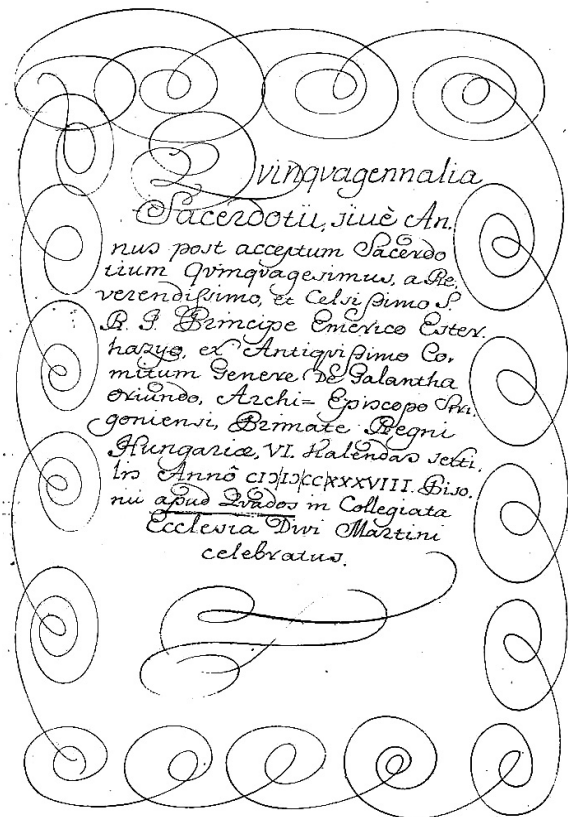 Qvinqvagennalia
Sacerdotii, siuè An,
nus post acceptum Sacerdo
tium Qvinqvagesimus, a Re,
verendißimo, et Celsißimo S.
R. I. Principe Emerico Ester,
hazÿo, ex Antiqvißimo Co,
mitum Genere De Galantha
Oriundo, Archi= Episcopo Stri,
goniensi, Primate Regni
Hungariæ, VI. Kalendas
In Annô CIƆ|IƆ|CCXXXVIII. Piso,
nii apud Qvados in Collegiata
Ecclesia Divi Martini
celebratus.